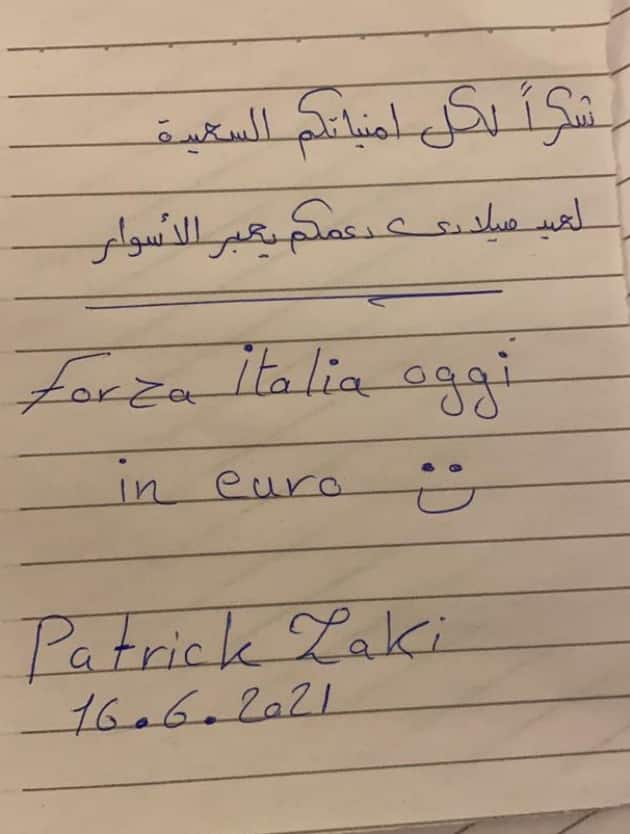 شكراً لكل امنياتكم السعيدة
لعيد ميلادى دعمكم يعبر الأسوار
forza italia oggi
in euro
Patrick Zaki
16.6.2021